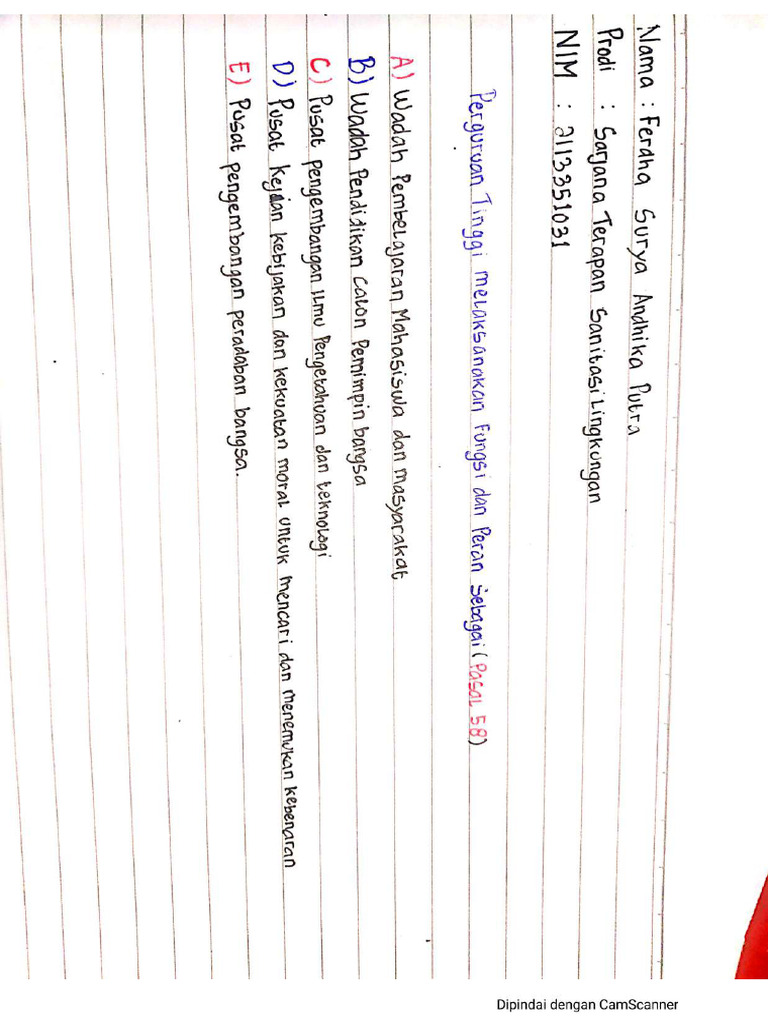 Nama : Ferdha Surya Andhika Putra
Prodi : Sarjana Terapan Sanitasi Lingkungan
NIM : 2113351031
Perguruan Tinggi melaksanakan Fungsi dan Peran Sebagai (Pasal 58)
A) Wadah Pembelajaran Mahasiswa dan Masyarakat
B) Wadah Pendidikan Calon Pemimpin bangsa
C) Pusat pengembangan Ilmu Pengetahuan dan teknologi
D) Pusat Kejian kebijakan dan kekuatan moral untuk mencari dan menemukan kebenaran
E) Pusat pengembangan peradaban bangsa.
Dipindai dengan CamScanner